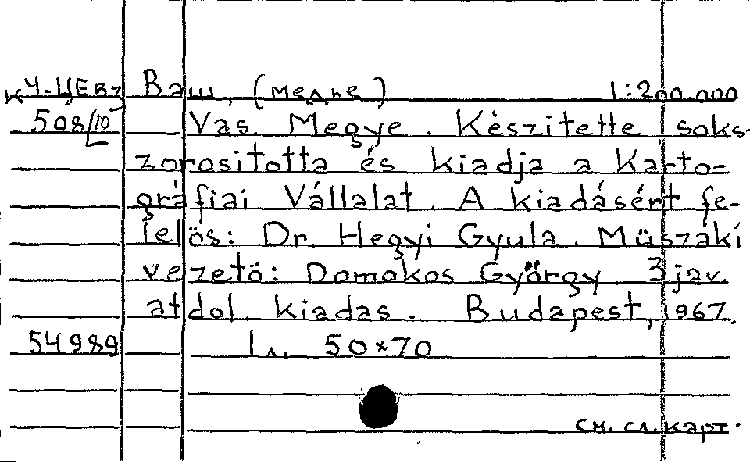 К Ч-ЦЕВ7 Ваш, (медье) 1:200.000
508/10 Vas Megye. Készitette soks-
zorositotta és kiadja a Karto-
gráfiai Vállalat. A kiadásért fe-
lelös: Dr. Hegyi Gyula. Müszáki
vezetö: Domokos György 3 jav.
atdol kiadas. Budapest, 1967.
54989 1 л. 50×70
см. сл. карт.